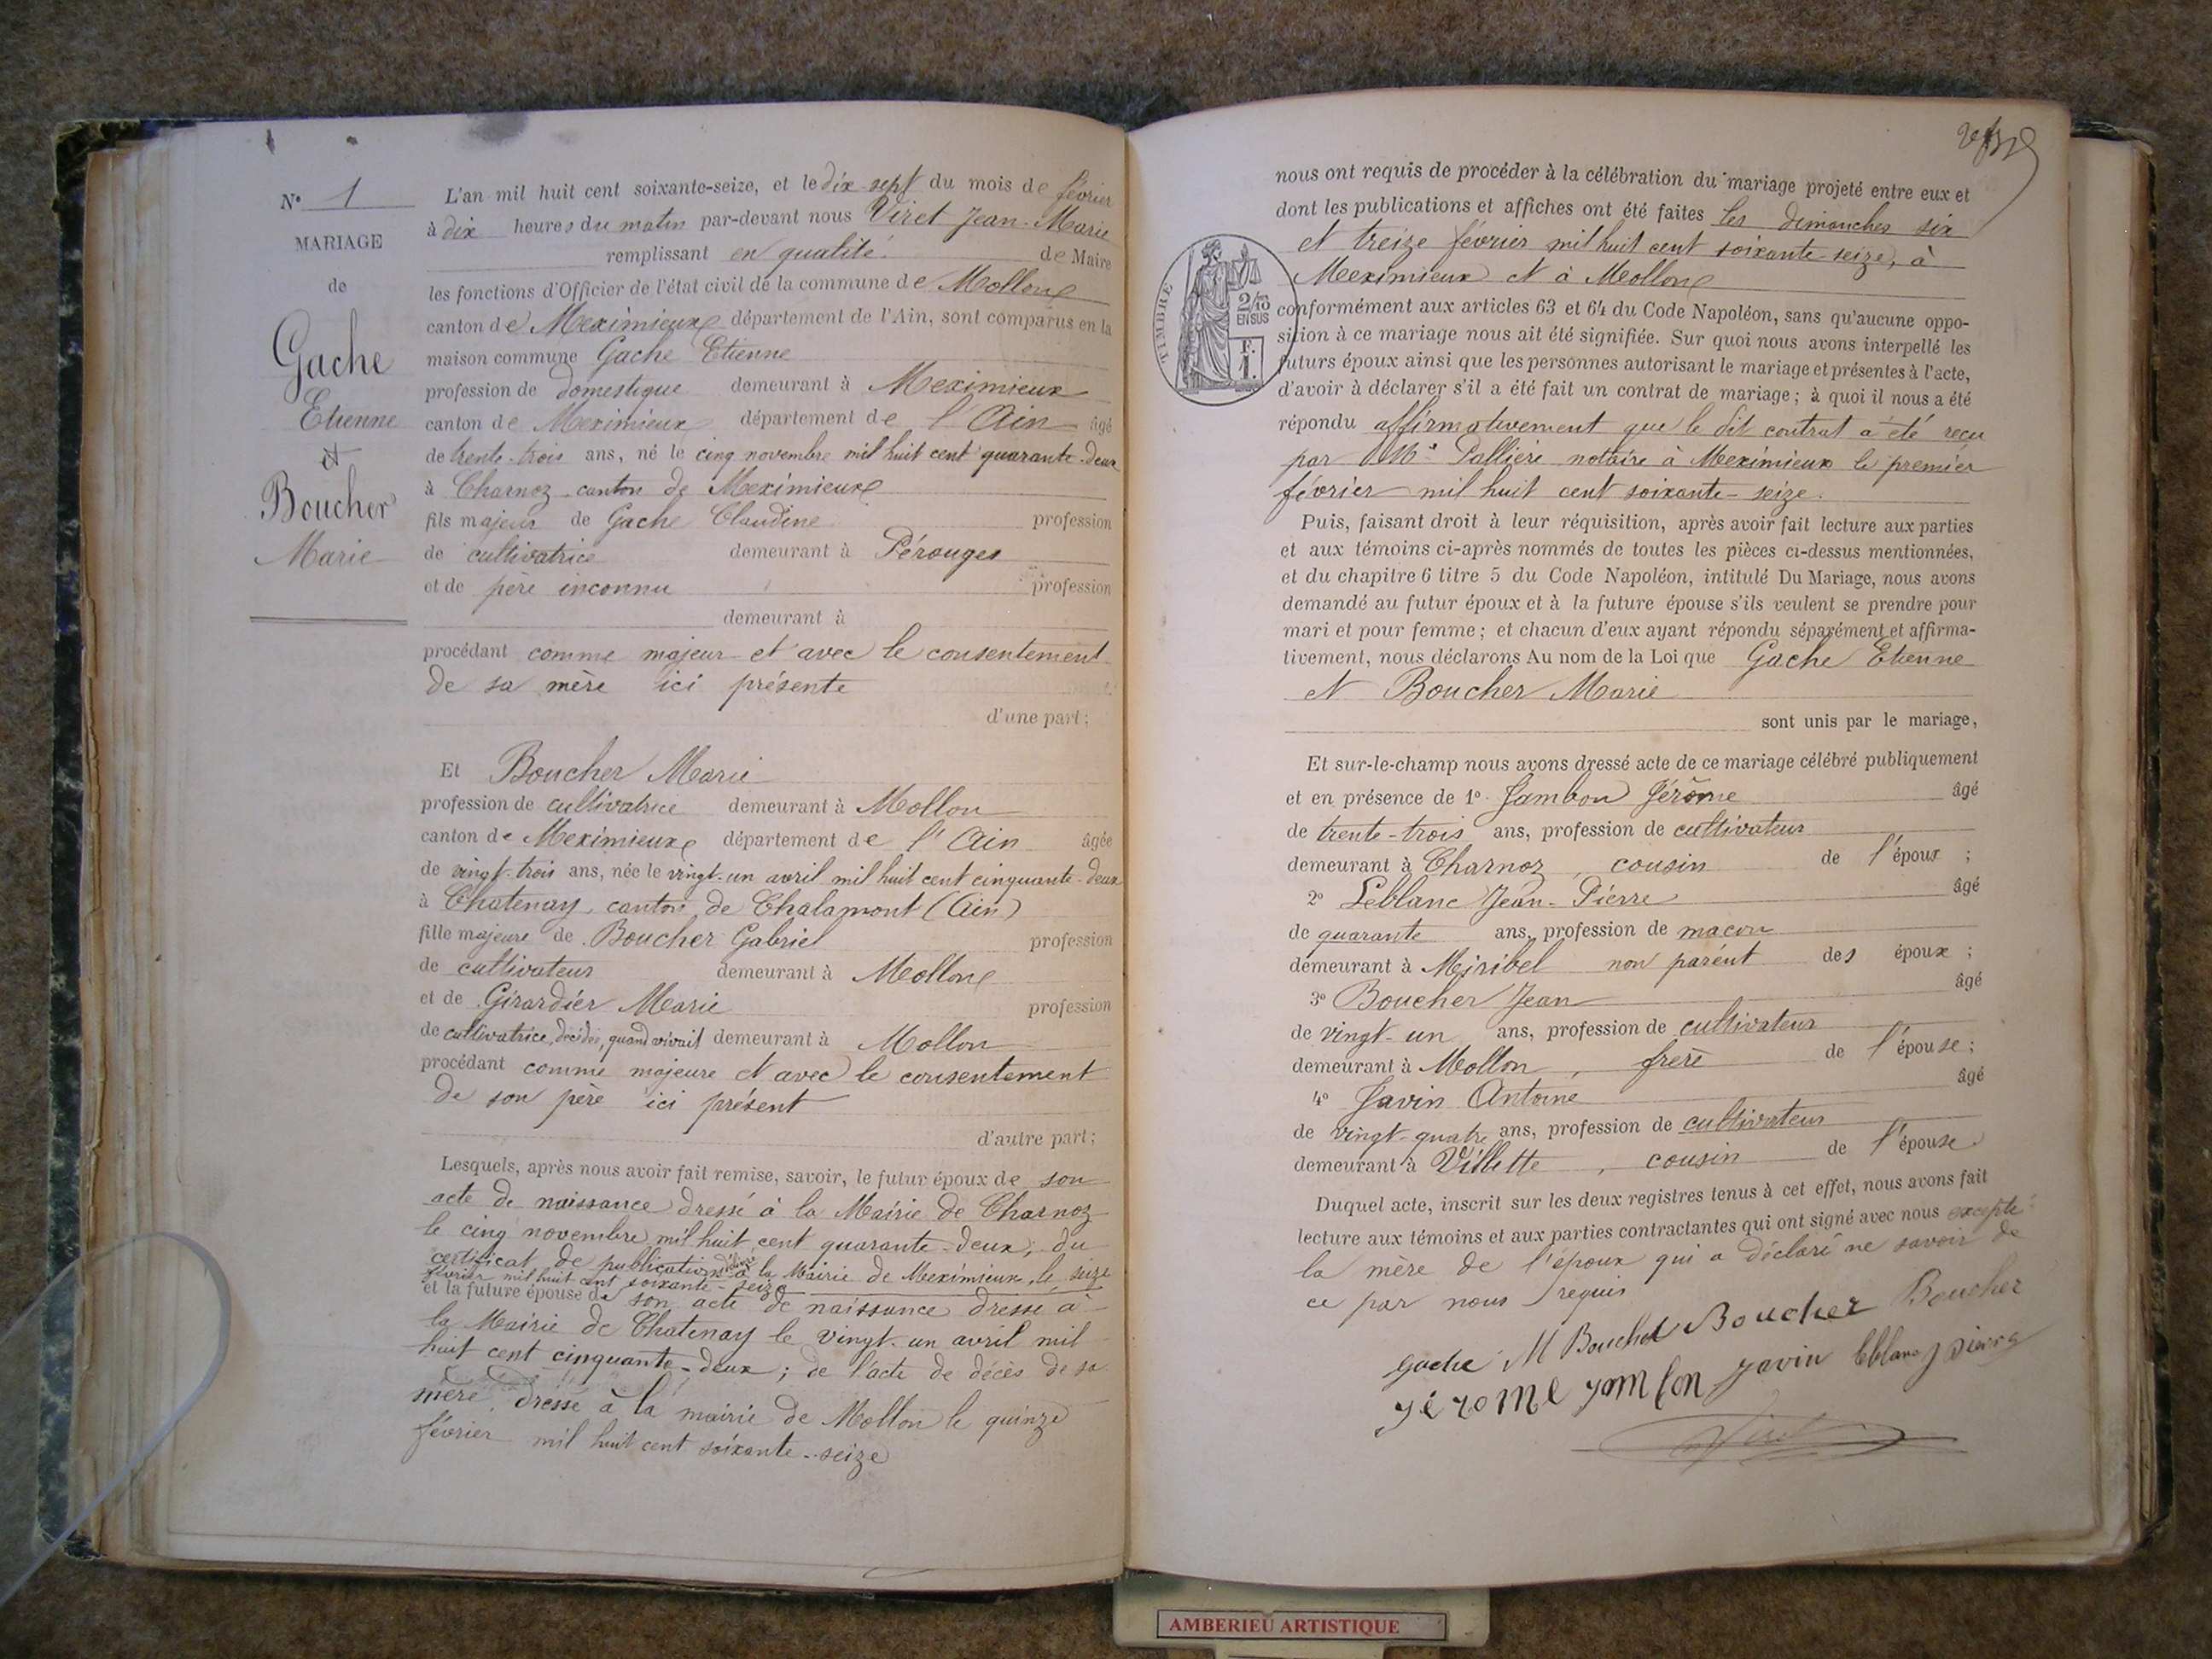 N° 1
MARIAGE
de
Gache
Etienne
et
Boucher
Marie
L'an mil huit cent soixante-seize, et le dix-sept du mois de février
à dix heures du matin par-devant nous Viret Jean-Marie
remplissant en qualité de Maire
les fonctions d'Officier de l'état civil de la commune de Mollon
canton de Meximieux département de l'Ain, sont comparus en la
maison commune Gache Etienne
profession de domestique demeurant à Meximieux
canton de Meximieux département de l'Ain âgé
de trente-trois ans, né le cinq novembre mil huit cent quarante-deux
à Charnoz canton de Meximieux
fils majeur de Gache Claudine profession
de cultivatrice demeurant à Pérouges
et de père inconnu profession
demeurant à
procédant comme majeur et avec le consentement
de sa mère ici présente
d'une part;
Et Boucher Marie
profession de cultivatrice demeurant à Mollon
canton de Meximieux département de l'Ain âgée
de vingt-trois ans, née le vingt-un avril mil huit cent cinquante-deux
à Chatenay, canton de Chalamont (Ain)
fille majeure de Boucher Gabriel profession
de cultivateur demeurant à Mollon
et de Girardier Marie profession
de cultivatrice, décédée, quand vivait demeurant à Mollon
procédant comme majeure et avec le consentement
de son père ici présent
d'autre part;
Lesquels, après nous avoir fait remise, savoir, le futur époux de son
acte de naissance dressé à la Mairie de Charnoz
le cinq novembre mil huit cent quarante-deux; du
certificat de publications délivré à la Mairie de Meximieux, le seize
février mil huit cent soixante-seize
et la future épouse de son acte de naissance dressé à
la Mairie de Chatenay le vingt-un avril mil
huit cent cinquante-deux; de l'acte de décès de sa
mère, dressé à la mairie de Mollon le quinze
février mil huit cent soixante-seize
nous ont requis de procéder à la célébration du mariage projeté entre eux et
dont les publications et affiches ont été faites les dimanches six
et treize février mil huit cent soixante-seize, à
Meximieux et à Mollon
TIMBRE
2/10 EN SUS
F. 1.
conformément aux articles 63 et 64 du Code Napoléon, sans qu'aucune oppo-
sition à ce mariage nous ait été signifiée. Sur quoi nous avons interpellé les
futurs époux ainsi que les personnes autorisant le mariage et présentes à l'acte,
d'avoir à déclarer s'il a été fait un contrat de mariage; à quoi il nous a été
répondu affirmativement que le dit contrat a été reçu
par Me Pallière notaire à Meximieux le premier
février mil huit cent soixante-seize.
Puis, faisant droit à leur réquisition, après avoir fait lecture aux parties
et aux témoins ci-après nommés de toutes les pièces ci-dessus mentionnées,
et du chapitre 6 titre 5 du Code Napoléon, intitulé Du Mariage, nous avons
demandé au futur époux et à la future épouse s'ils veulent se prendre pour
mari et pour femme; et chacun d'eux ayant répondu séparément et affirma-
tivement, nous déclarons Au nom de la Loi que Gache Etienne
et Boucher Marie
sont unis par le mariage,
Et sur-le-champ nous avons dressé acte de ce mariage célébré publiquement
et en présence de 1° Jambon Jérôme âgé
de trente-trois ans, profession de cultivateur
demeurant à Charnoz, cousin de l'époux;
2° Leblanc Jean-Pierre âgé
de quarante ans, profession de macon
demeurant à Miribel non parent des époux;
3° Boucher Jean âgé
de vingt-un ans, profession de cultivateur
demeurant à Mollon, frère de l'épouse;
4° Javin Antoine âgé
de vingt-quatre ans, profession de cultivateur
demeurant à Villette, cousin de l'épouse
Duquel acte, inscrit sur les deux registres tenus à cet effet, nous avons fait
lecture aux témoins et aux parties contractantes qui ont signé avec nous excepté
la mère de l'époux qui a déclaré ne savoir de
ce par nous requis
Gache M Boucher Boucher Boucher
Jérome Jambon Javin leblanc J pierre
Viret
AMBERIEU ARTISTIQUE